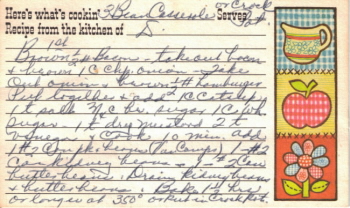 Here's what's cookin' 3 Bean Casserole Serves
or Crock Pot
Recipe from the kitchen of D.
1st
Brown ½# Bacon - take out bacon
& brown 1 C chp. onion - Take
out onion - brown 1# hamburger
Put together & add 1 C Catsup
1 t salt 3/4 C br. sugar 1 C wh.
Sugar 1 t dry mustard 2 t
Vinegar & Cook 10 min. add
1 #2 Can pk. beans (Van Camps) 1-#2
Can kidney beans - 1-#2 Can
butter beans. Drain kidney beans
& butter beans. Bake 1 hr
or longer at 350° or Put in Crock Pot.